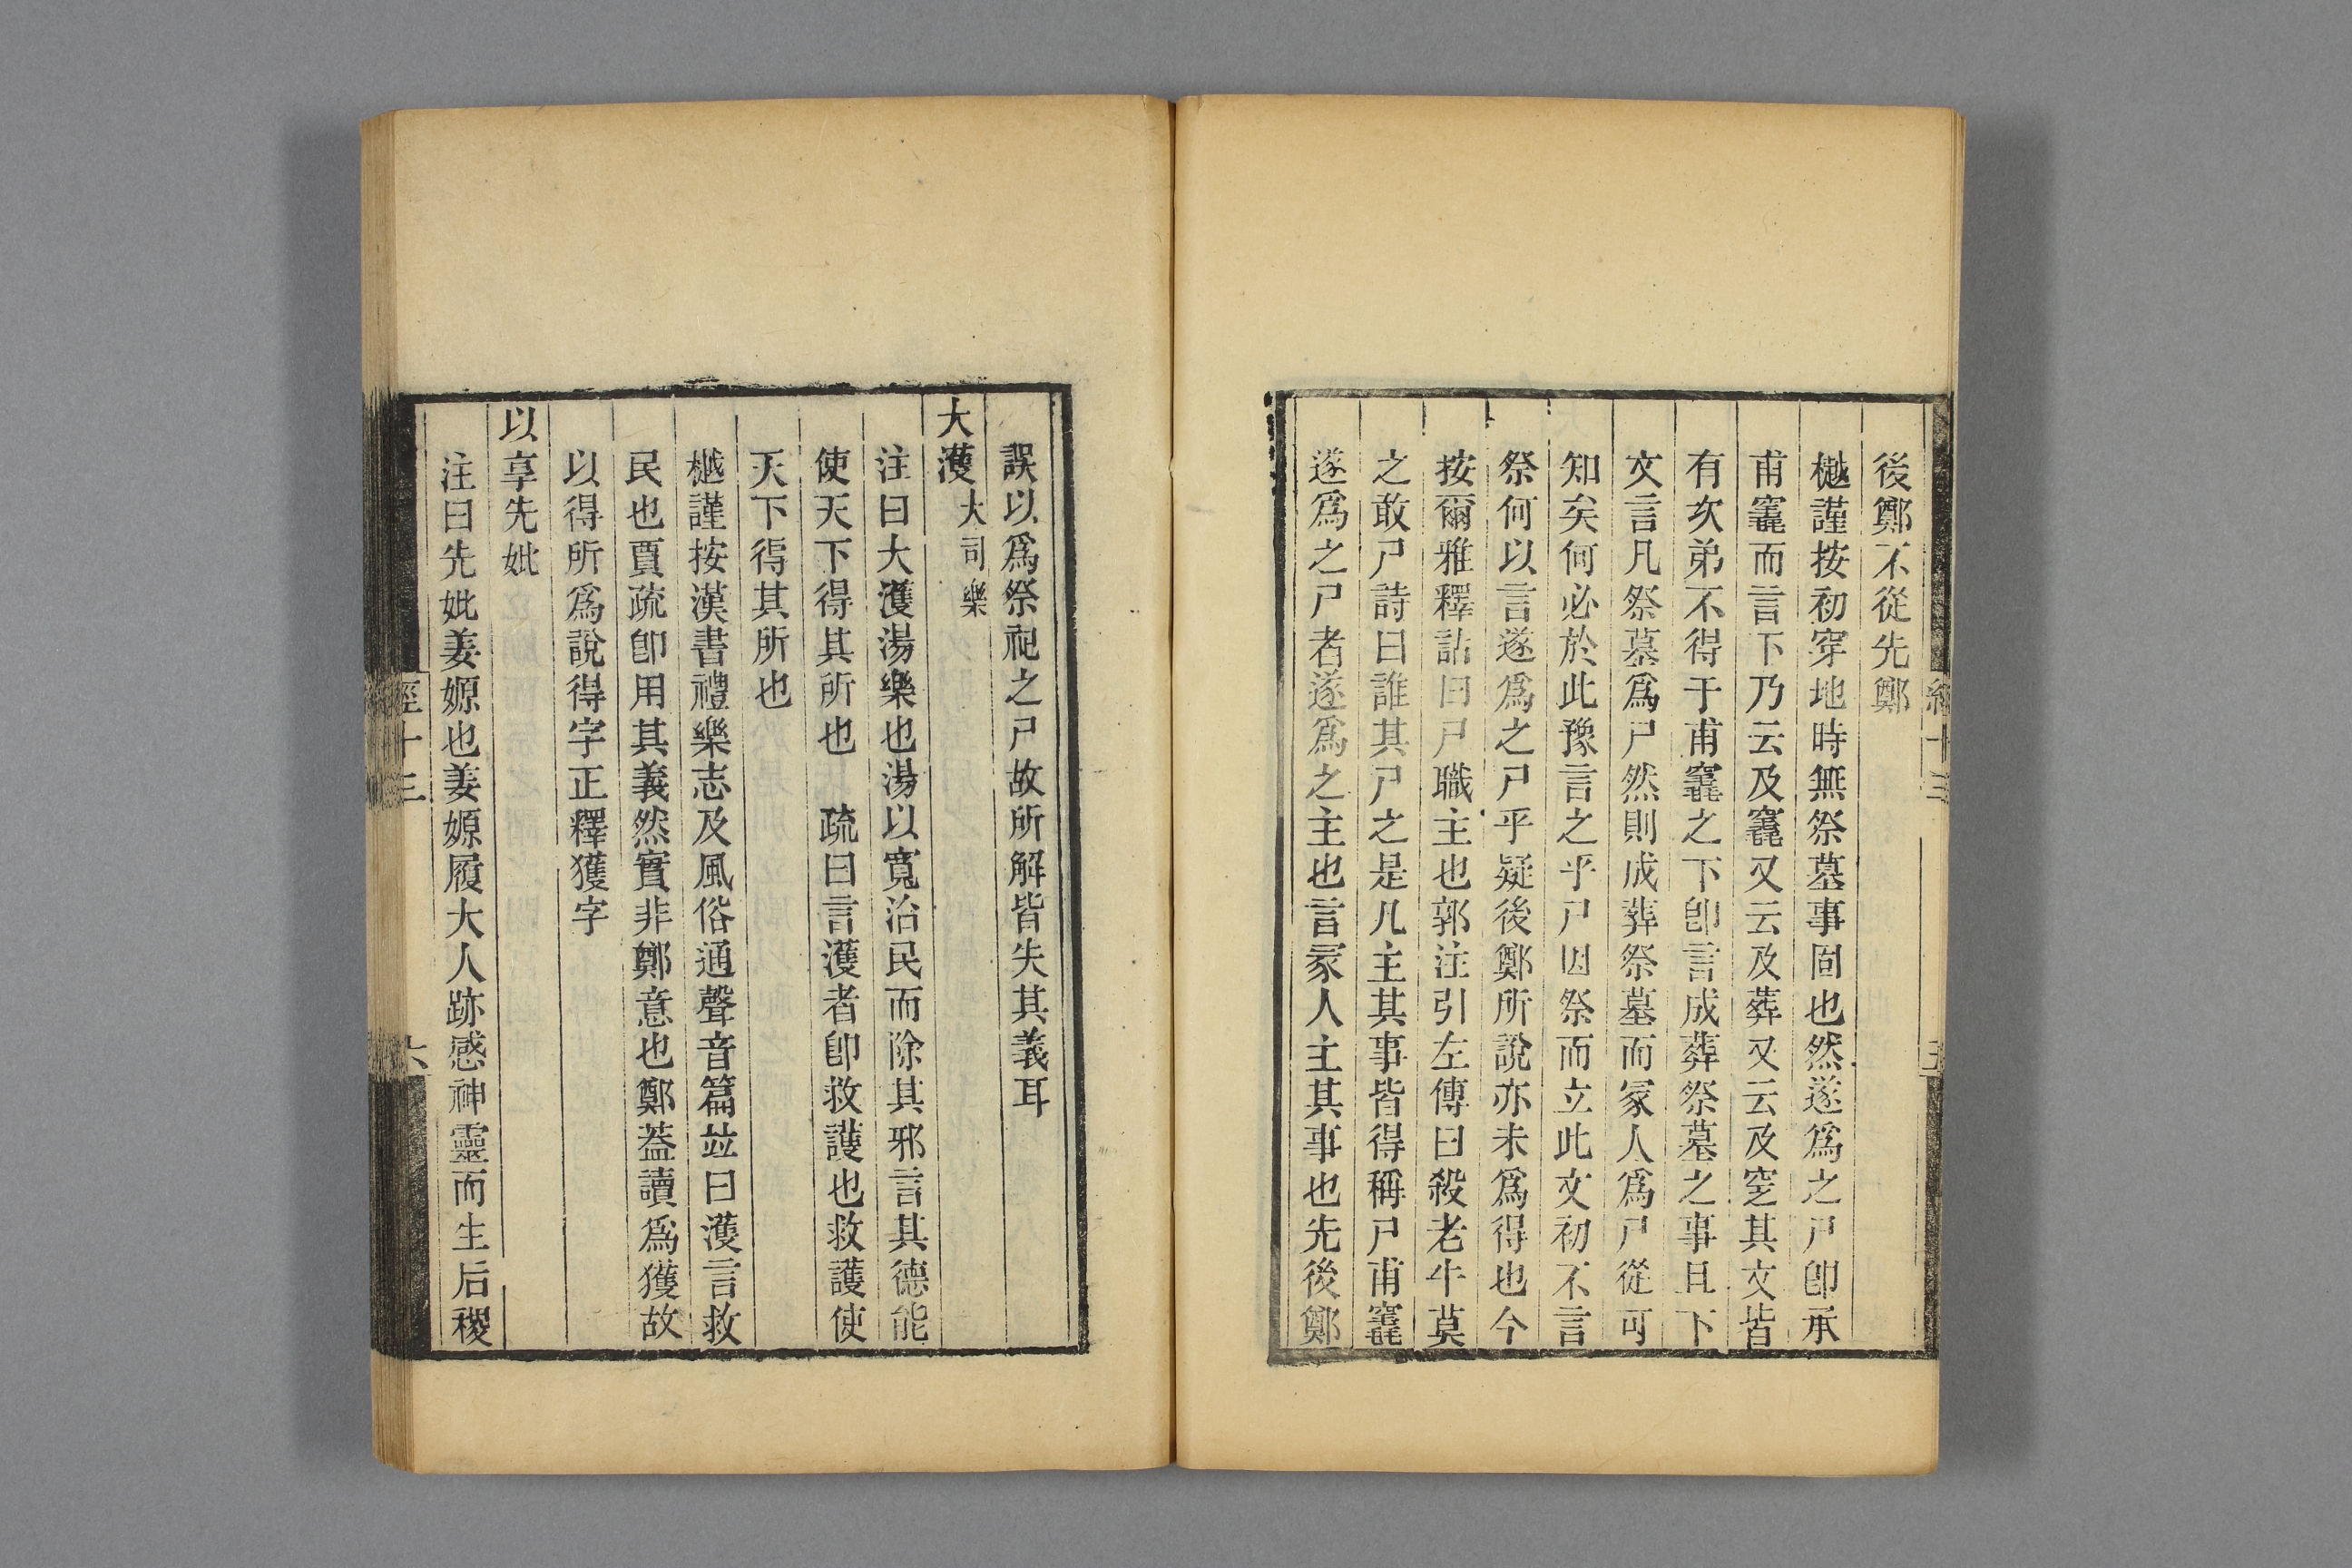 後鄭不從先鄭
樾謹按初穿地時無祭墓事固也然遂爲之尸卽承
甫竁而言下乃云及竁又云及葬又云及窆其文皆
有次弟不得于甫竁之下卽言成葬祭墓之事且下
文言凡祭墓爲尸然則成葬祭墓而冢人爲尸從可
知矣何必於此豫言之乎尸因祭而立此文初不言
祭何以言遂爲之尸乎疑後鄭所說亦未爲得也今
按爾雅釋詁曰尸職主也郭注引左傳曰殺老牛莫
之敢尸詩曰誰其尸之是凡主其事皆得稱尸甫竁
遂爲之尸者遂爲之主也言冢人主其事也先後鄭
誤以爲祭祀之尸故所解皆失其義耳
大濩 大司樂
注曰大濩湯樂也湯以寬治民而除其邪言其德能
使天下得其所也 疏曰言濩者卽救護也救護使
天下得其所也
樾謹按漢書禮樂志及風俗通聲音篇竝曰濩言救
民也賈疏卽用其義然實非鄭意也鄭葢讀爲獲故
以得所爲說得字正釋獲字
以享先妣
注曰先妣姜嫄也姜嫄履大人跡感神靈而生后稷
經十三
六